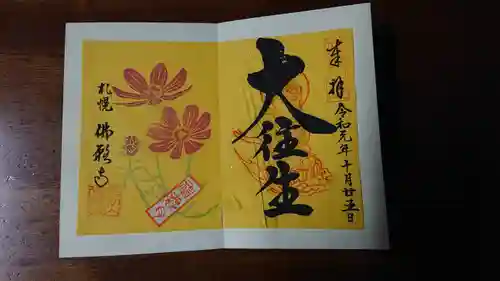 奉拝
令和元年十月廿五日
大往生
札幌
佛願寺